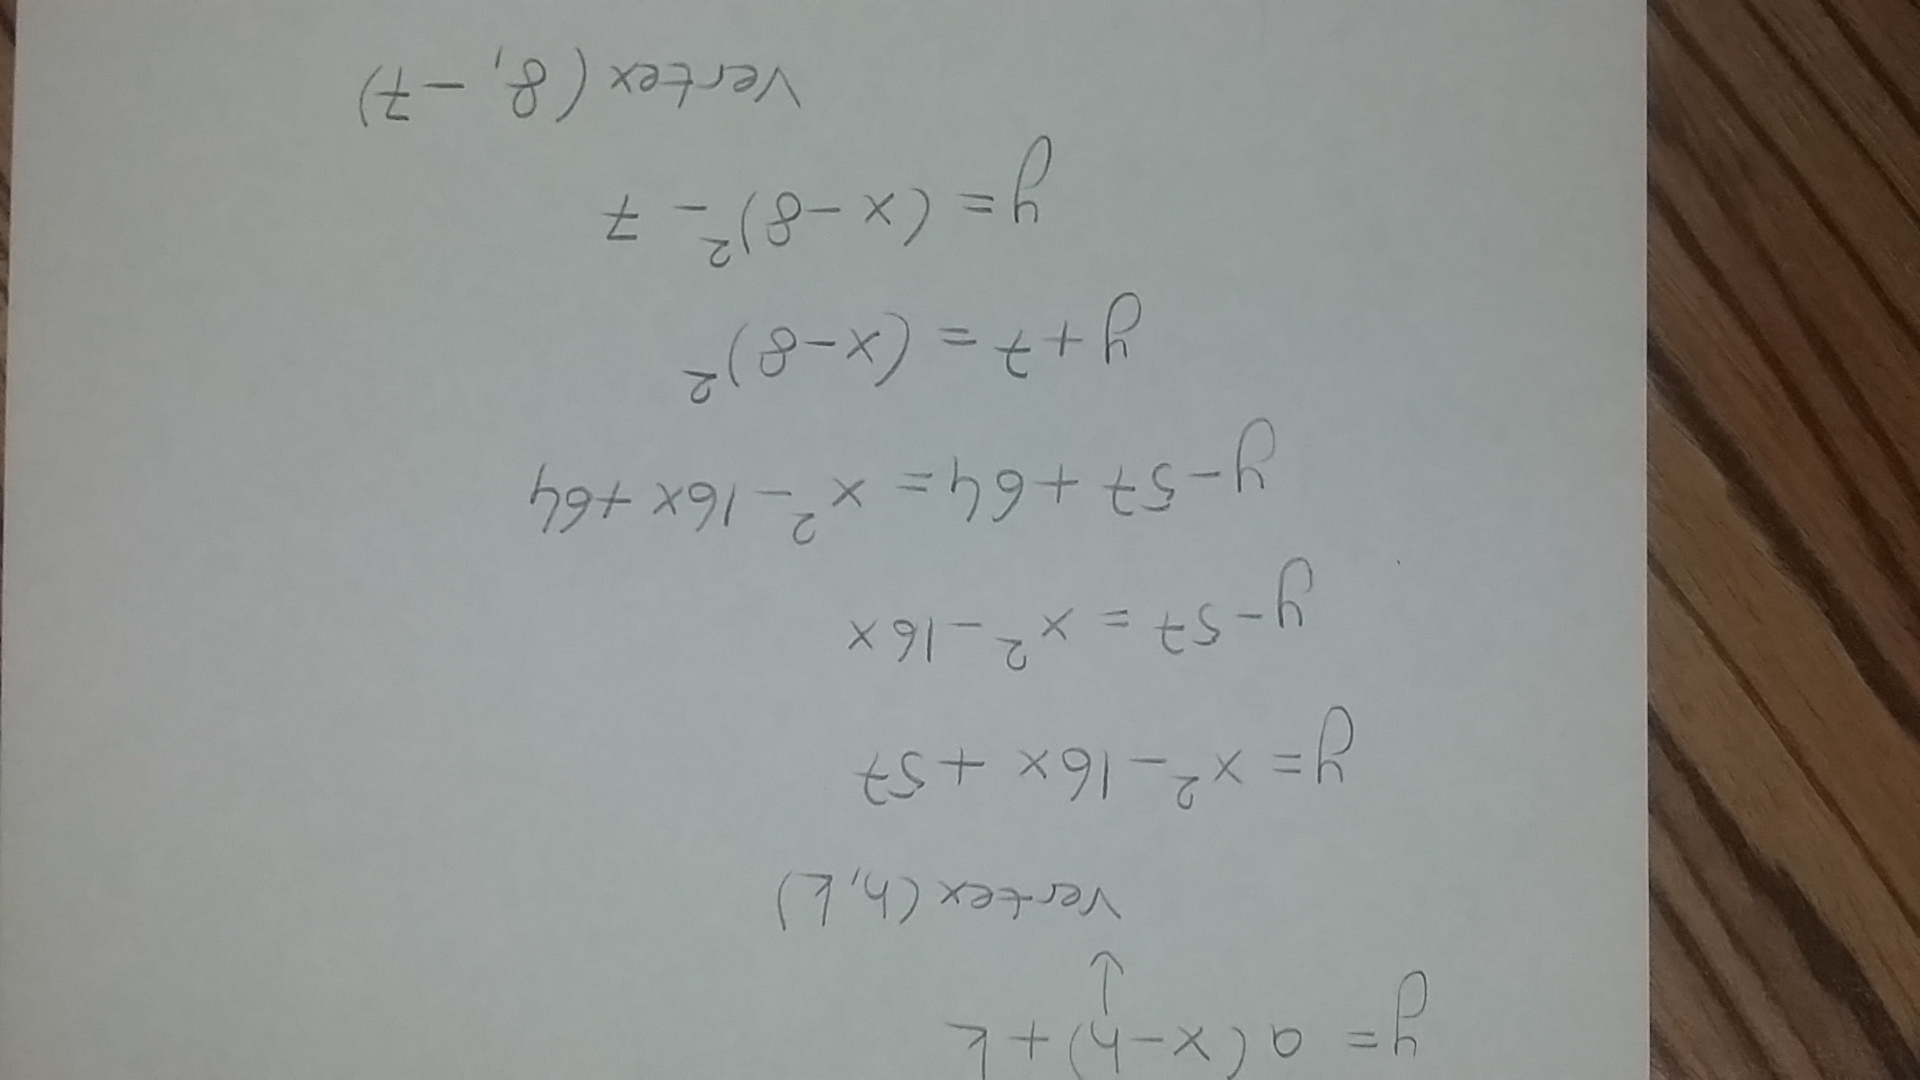 y = a(x-h) + k
↓
vertex (h, k)
y = x² - 16x + 57
y - 57 = x² - 16x
y - 57 + 64 = x² - 16x + 64
y + 7 = (x - 8)²
y = (x - 8)² - 7
vertex (8, -7)